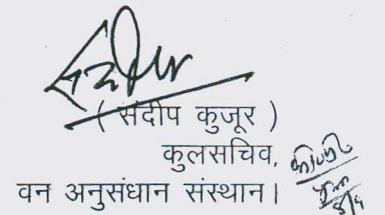 ( संदीप कुजूर )
कुलसचिव,
वन अनुसंधान संस्थान।